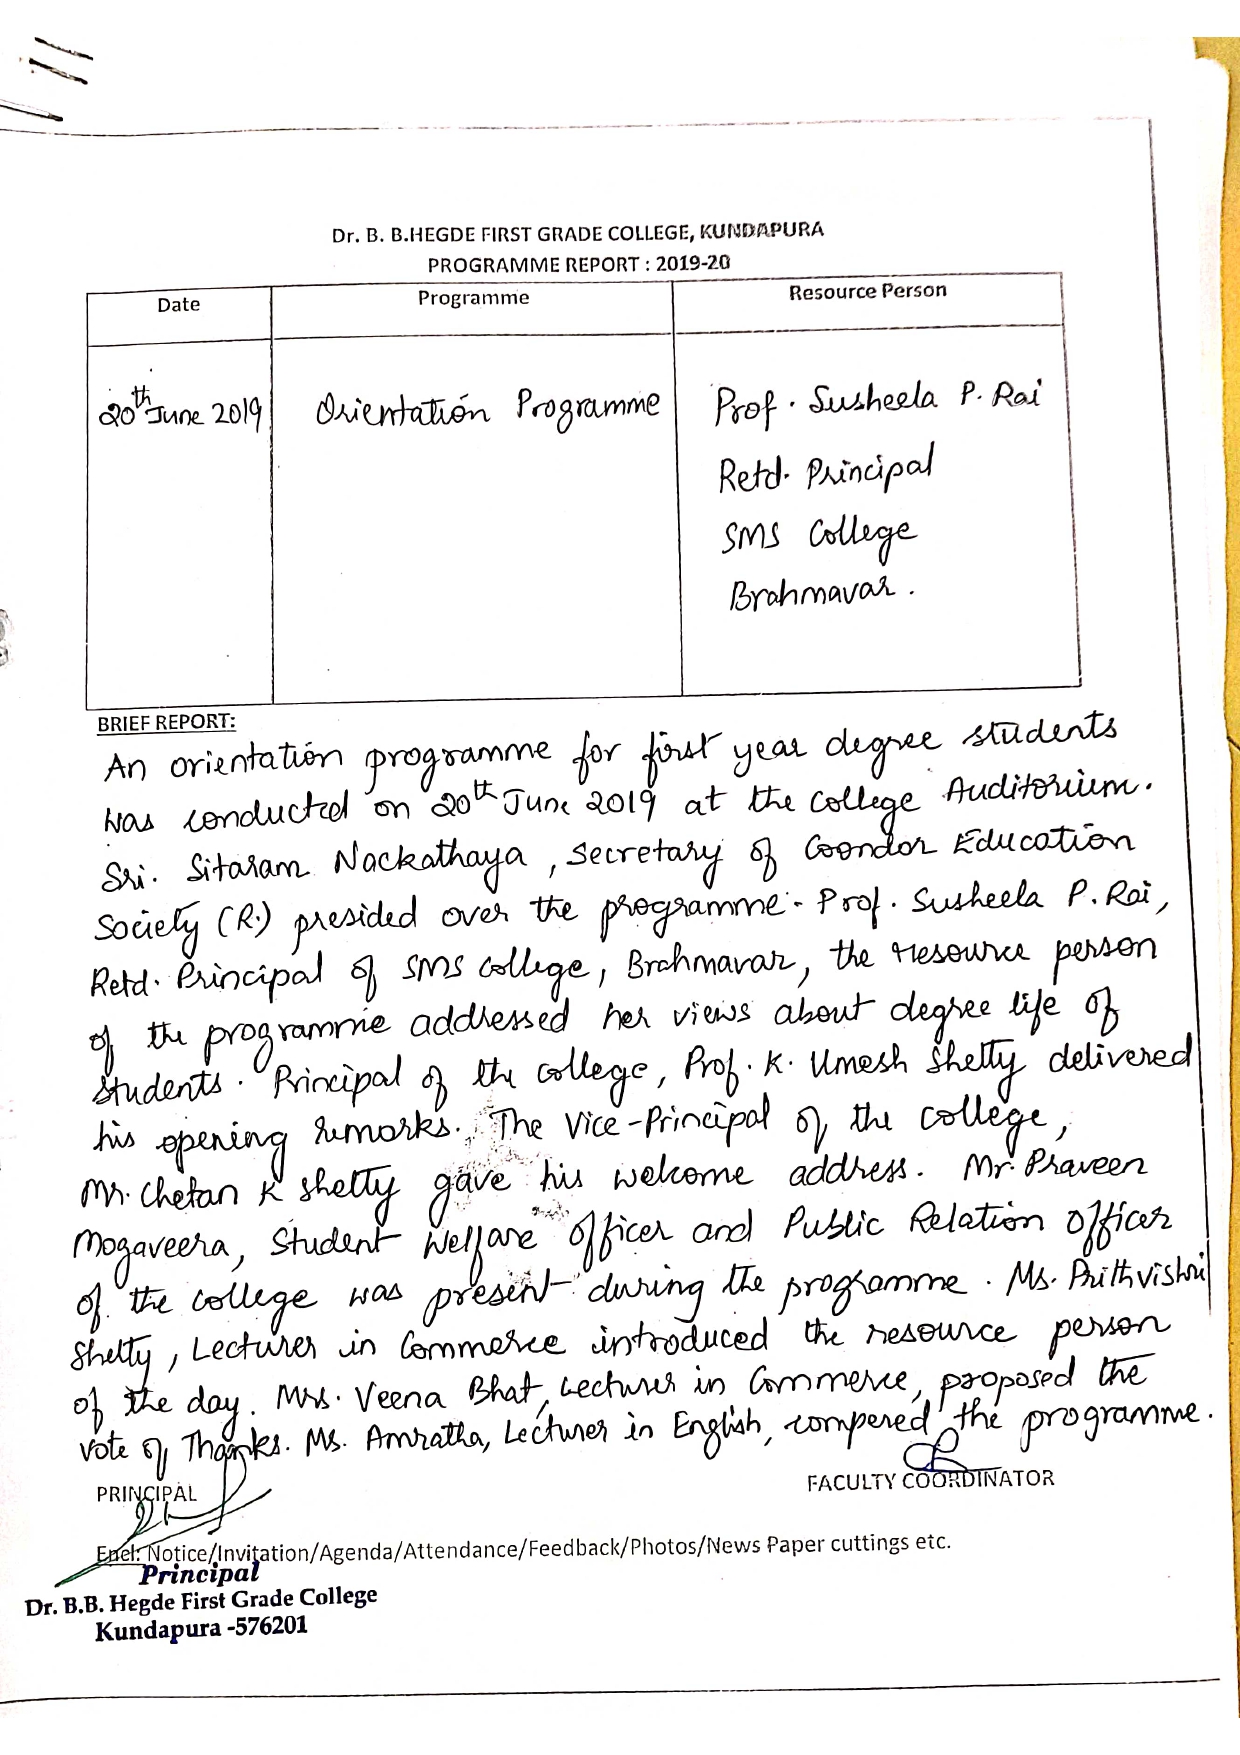 Dr. B. B.HEGDE FIRST GRADE COLLEGE, KUNDAPURA
PROGRAMME REPORT : 2019-20
Date
Programme
Resource Person
20th June 2019
Orientation Programme
Prof. Susheela P. Rai
Retd. Principal
SMS College
Brahmavar.
BRIEF REPORT:
An orientation programme for first year degree students
was conducted on 20th June 2019 at the college Auditorium.
Sri. Sitaram Nackathaya, Secretary of Coondor Education
Society (R.) presided over the programme. Prof. Susheela P. Rai,
Retd. Principal of SMS College, Brahmavar, the resource person
of the programme addressed her views about degree life of
students. Principal of the college, Prof. K. Umesh Shetty delivered
his opening remarks. The Vice-Principal of the college,
Mr. Chetan K Shetty gave his welcome address. Mr. Praveen
Mogaveera, Student Welfare Officer and Public Relation Officer
of the college was present during the programme. Ms. Prithvishri
Shetty, Lecturer in Commerce introduced the resource person
of the day. Mrs. Veena Bhat, Lecturer in Commerce, proposed the
vote of Thanks. Ms. Amratha, Lecturer in English, compered the programme.
PRINCIPAL
FACULTY COORDINATOR
Encl: Notice/Invitation/Agenda/Attendance/Feedback/Photos/News Paper cuttings etc.
Principal
Dr. B.B. Hegde First Grade College
Kundapura -576201